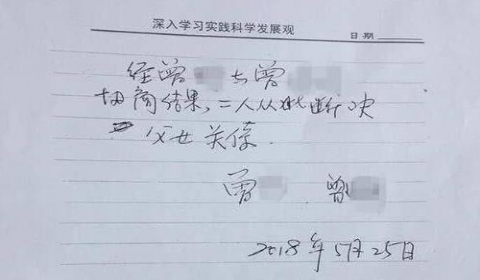 深入学习实践科学发展观
日期
经曾 与曾
协商结果，二人从此断决
父女关系.
曾 曾
2018年5月25日